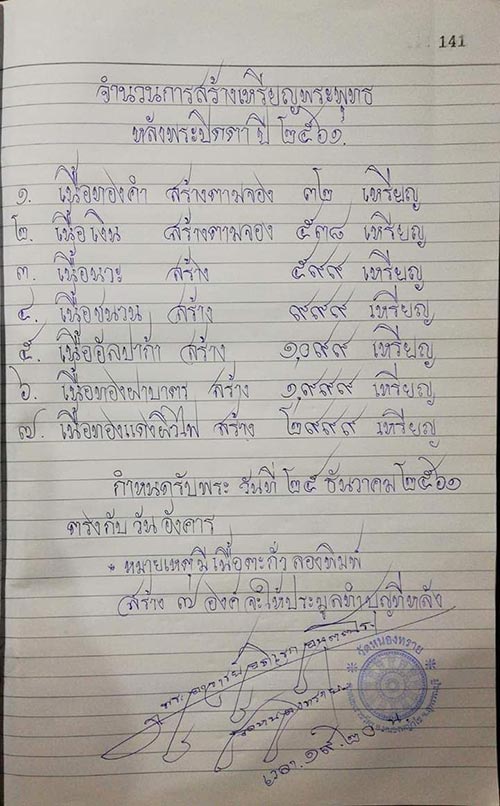 141
จำนวนการสร้างเหรียญพระพุทธ
หลังพระปิดตา ปี ๒๕๖๑.
๑. เนื้อทองคำ สร้างตามจอง ๓๒ เหรียญ
๒. เนื้อเงิน สร้างตามจอง ๕๓๘ เหรียญ
๓. เนื้อนวะ สร้าง ๕๙๙ เหรียญ
๔. เนื้อชนวน สร้าง ๙๙๙ เหรียญ
๕. เนื้ออัลปาก้า สร้าง ๑,๐๙๙ เหรียญ
๖. เนื้อทองฝาบาตร สร้าง ๑,๙๙๙ เหรียญ
๗. เนื้อทองแดงผิวไฟ สร้าง ๒๙๙๙ เหรียญ
กำหนดรับพระ วันที่ ๒๕ ธันวาคม ๒๕๖๑
ตรงกับ วัน อังคาร
* หมายเหตุ มี เนื้อตะกั่ว ลองพิมพ์
สร้าง ๗ องค์ จะให้ประมูลทำบุญทีหลัง
วัดหนองทราย
เวลา ๑๙.๒๐ น.